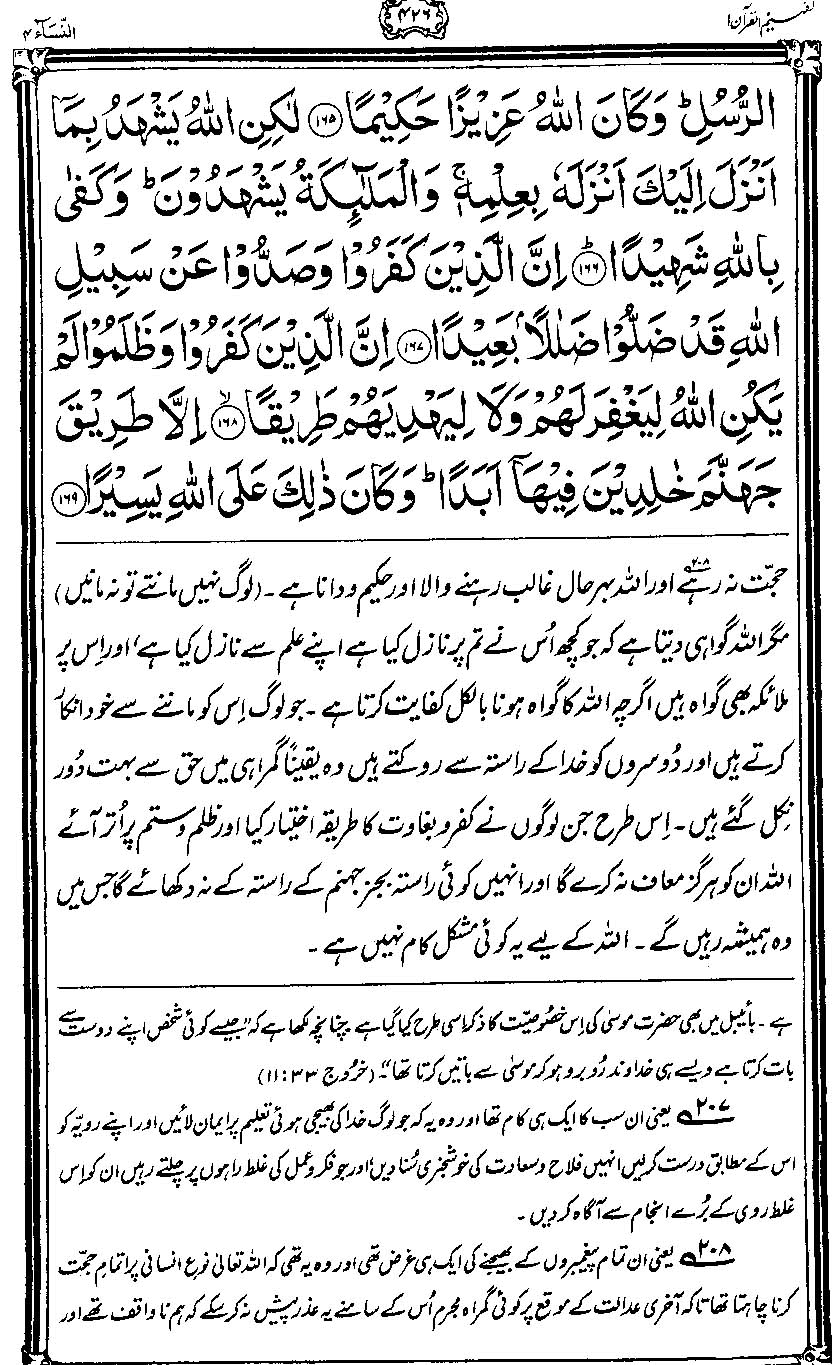 تفہیم القرآن ۱
۴۲۶
النساء ۴
الرُّسُلِ ؕ وَكَانَ اللّٰهُ عَزِيْزًا حَكِيْمًا ﴿۱۶۵﴾ لٰكِنِ اللّٰهُ يَشْهَدُ بِمَاۤ
اَنْزَلَ اِلَيْكَ اَنْزَلَهٗ بِعِلْمِهٖ ۚ وَالْمَلٰٓىِٕكَةُ يَشْهَدُوْنَ ؕ وَكَفٰى
بِاللّٰهِ شَهِيْدًا ؕ﴿۱۶۶﴾ اِنَّ الَّذِيْنَ كَفَرُوْا وَصَدُّوْا عَنْ سَبِيْلِ
اللّٰهِ قَدْ ضَلُّوْا ضَلٰلًاۢ بَعِيْدًا ﴿۱۶۷﴾ اِنَّ الَّذِيْنَ كَفَرُوْا وَظَلَمُوْا لَمْ
يَكُنِ اللّٰهُ لِيَغْفِرَ لَهُمْ وَلَا لِيَهْدِيَهُمْ طَرِيْقًا ۙ﴿۱۶۸﴾ اِلَّا طَرِيْقَ
جَهَنَّمَ خٰلِدِيْنَ فِيْهَاۤ اَبَدًا ؕ وَكَانَ ذٰلِكَ عَلَى اللّٰهِ يَسِيْرًا ﴿۱۶۹﴾
حجّت نہ رہے۲۰۸ اور اللہ بہرحال غالب رہنے والا اور حکیم و دانا ہے۔ (لوگ نہیں مانتے تو نہ مانیں)
مگر اللہ گواہی دیتا ہے کہ جو کچھ اُس نے تم پر نازل کیا ہے اپنے علم سے نازل کیا ہے، اور اِس پر
ملائکہ بھی گواہ ہیں اگرچہ اللہ کا گواہ ہونا بالکل کفایت کرتا ہے۔ جو لوگ اِس کو ماننے سے خود انکار
کرتے ہیں اور دُوسروں کو خدا کے راستہ سے روکتے ہیں وہ یقیناً گمراہی میں حق سے بہت دُور
نِکل گئے ہیں۔ اِس طرح جن لوگوں نے کفر و بغاوت کا طریقہ اختیار کیا اور ظلم و ستم پر اُتر آئے
اللہ ان کو ہرگز معاف نہ کرے گا اور انہیں کوئی راستہ بجز جہنم کے راستہ کے نہ دکھائے گا جس میں
وہ ہمیشہ رہیں گے۔ اللہ کے لیے یہ کوئی مشکل کام نہیں ہے۔
ہے۔ بائیبل میں بھی حضرت موسیٰ کی اِس خصوصیّت کا ذکر اسی طرح کیا گیا ہے چنانچہ لکھا ہے کہ ”جیسے کوئی شخص اپنے دوست سے
بات کرتا ہے ویسے ہی خداوند رُو برو ہو کر موسیٰ سے باتیں کرتا تھا“۔ (خرُوج ۳۳:۱۱)
۲۰۷ یعنی ان سب کا ایک ہی کام تھا اور وہ یہ کہ جو لوگ خدا کی بھیجی ہوئی تعلیم پر ایمان لائیں اور اپنے رویّہ کو
اس کے مطابق درست کرلیں انہیں فلاح و سعادت کی خوشخبری سُنا دیں، اور جو فکر و عمل کی غلط راہوں پر چلتے رہیں ان کو اِس
غلط روی کے بُرے انجام سے آگاہ کر دیں۔
۲۰۸ یعنی ان تمام پیغمبروں کے بھیجنے کی ایک ہی غرض تھی اور وہ یہ تھی کہ اللہ تعالیٰ نوعِ انسانی پر اتمامِ حجّت
کرنا چاہتا تھا تاکہ آخری عدالت کے موقع پر کوئی گمراہ مجرم اُس کے سامنے یہ عذر پیش نہ کر سکے کہ ہم نا واقف تھے اور